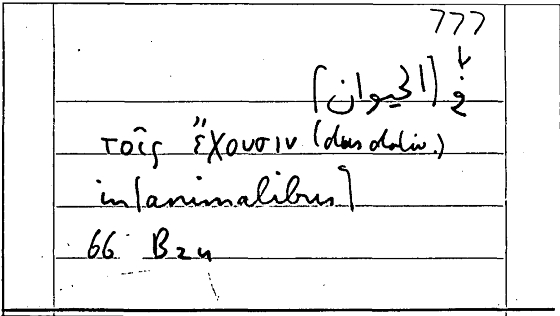 777
في [الحيوان]
τοῖς ἔχουσιν dativ.)
in[animalibus]
66 B24